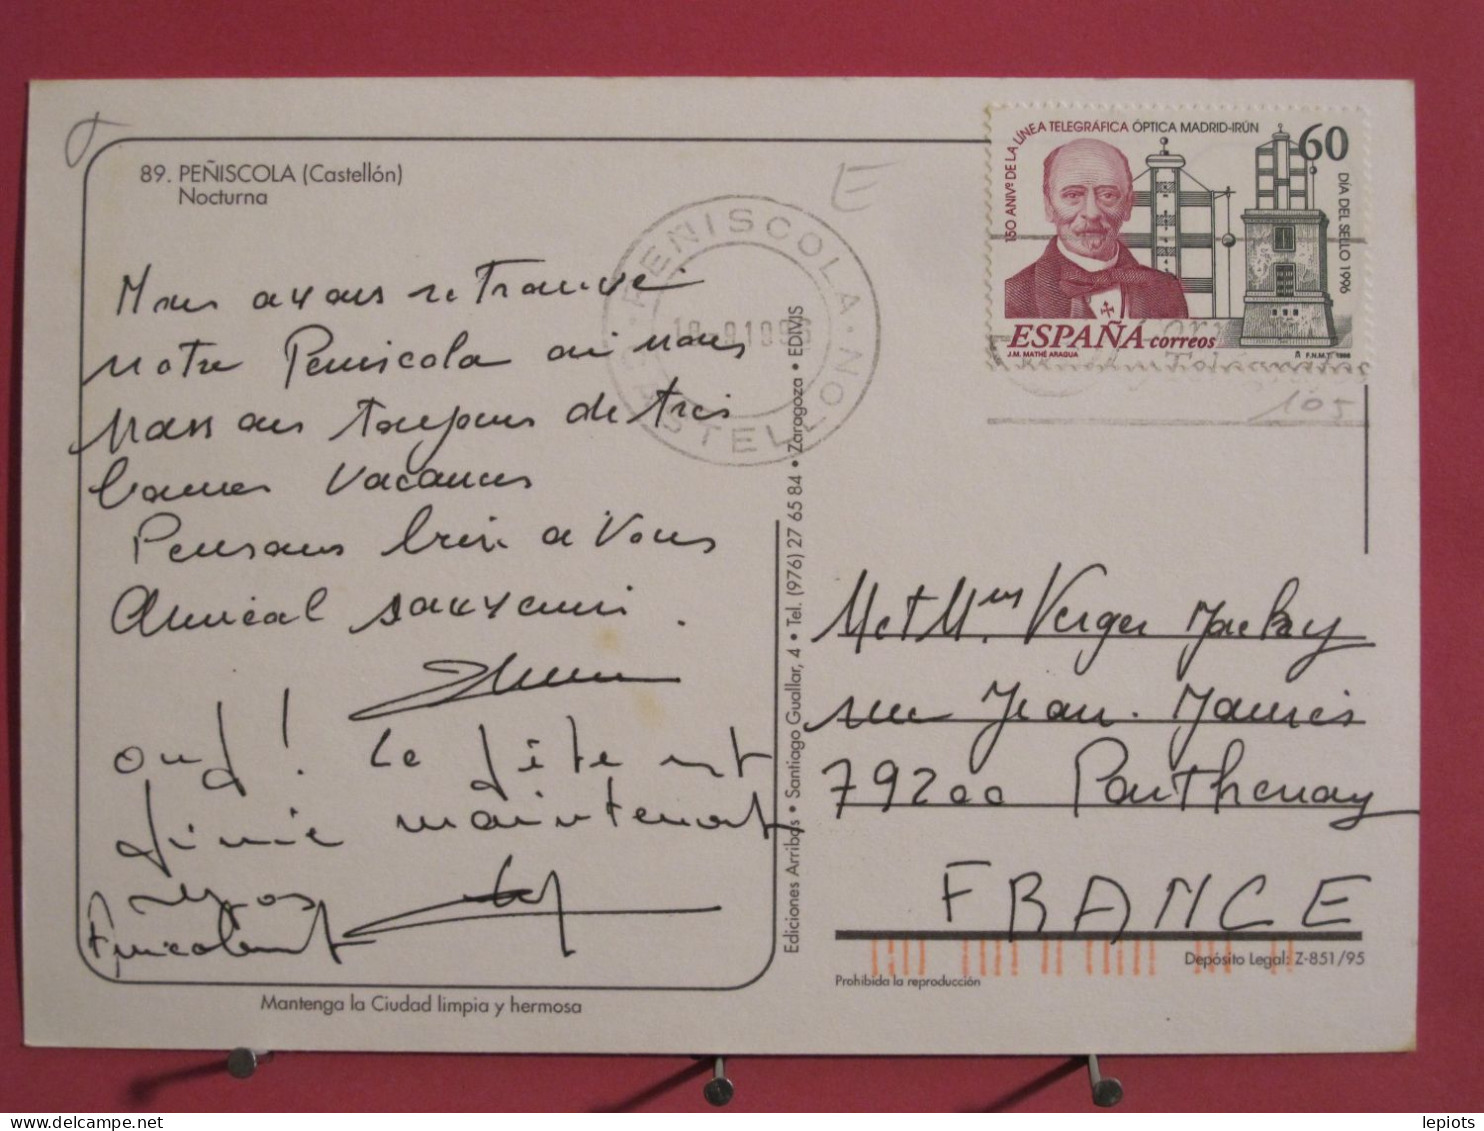 89. PEÑISCOLA (Castellón)
Nocturna
Nous avons retrouvé
notre Peniscola où nous
passons toujours de très
bonnes vacances
Pensons bien à Vous
Amical souvenir.
ouf ! la fête est
finie maintenant
Amicalement
Mantenga la Ciudad limpia y hermosa
PEÑISCOLA · NO
CASTELLON
Ediciones Arribas • Santiago Guallar, 4 • Tel. (976) 27 65 84 • Zaragoza • EDIVIS
E
150 ANIVº DE LA LÍNEA TELEGRÁFICA ÓPTICA MADRID-IRÚN
60
DÍA DEL SELLO 1996
ESPAÑA correos
J.M. MATHÉ ARAGUA
F.N.M.T. 1996
105
M et Mme Verger Jacky
rue Jean. Jaurès
79200 Parthenay
FRANCE
Depósito Legal: Z-851/95
Prohibida la reproducción
lepiots